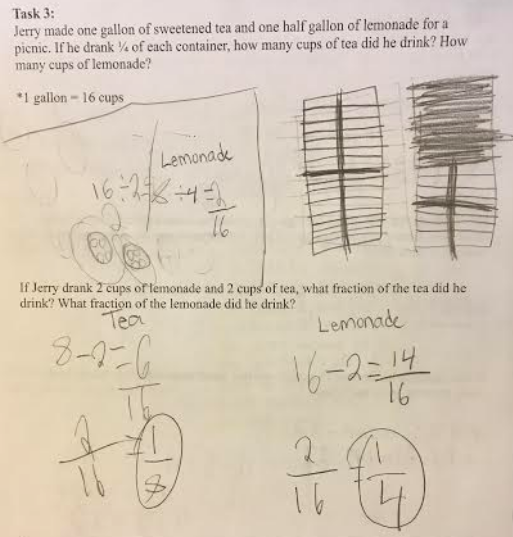 Task 3:
Jerry made one gallon of sweetened tea and one half gallon of lemonade for a
picnic. If he drank ¼ of each container, how many cups of tea did he drink? How
many cups of lemonade?
*1 gallon = 16 cups
Lemonade
16÷2=8÷4=2
16
If Jerry drank 2 cups of lemonade and 2 cups of tea, what fraction of the tea did he
drink? What fraction of the lemonade did he drink?
Tea
8-2=6
16
2/16 = 1/8
Lemonade
16-2=14
16
2/16 = 1/4